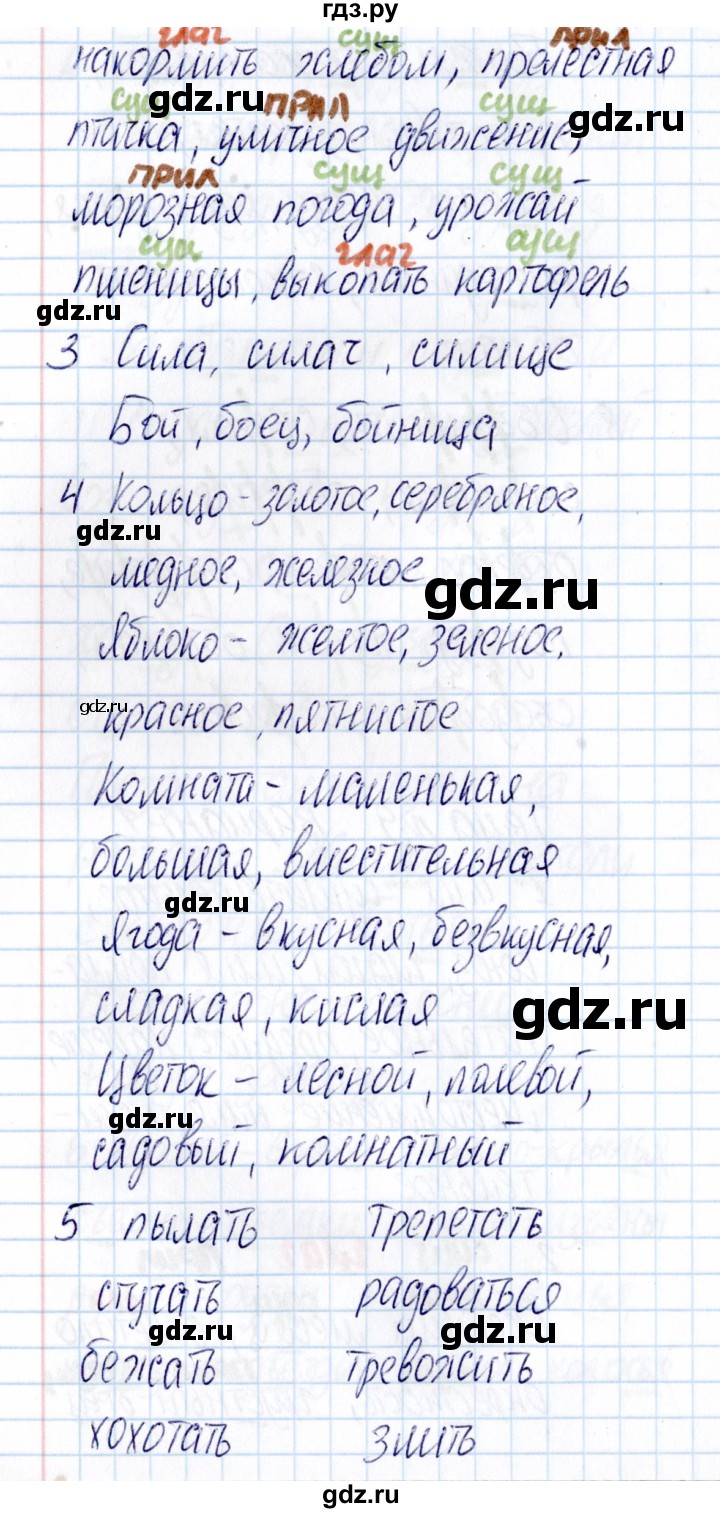 гдз.ру
глаг сущ прил
накормить хлебом, прелестная
сущ gdz.ru прил сущ gdz.ru
птичка, уличное движение,
прил сущ сущ
морозная погода, урожай
сущ глаг сущ
пшеницы, выкопать картофель
gdz.ru
3 Сила, силач, силище
Бой, боец, бойница
4 Кольцо - золотое, серебряное,
gdz.ru
медное, железное
gdz.ru
Яблоко - желтое, зеленое,
gdz.ru
красное, пятнистое
Комната - маленькая,
большая, вместительная
gdz.ru
Ягода - вкусная, безвкусная,
сладкая, кислая
gdz.ru
Цветок - лесной, полевой,
gdz.ru
садовый, комнатный
5 пылать трепетать
стучать радоваться
gdz.ru gdz.ru
бежать тревожить
хохотать злить
gdz.ru